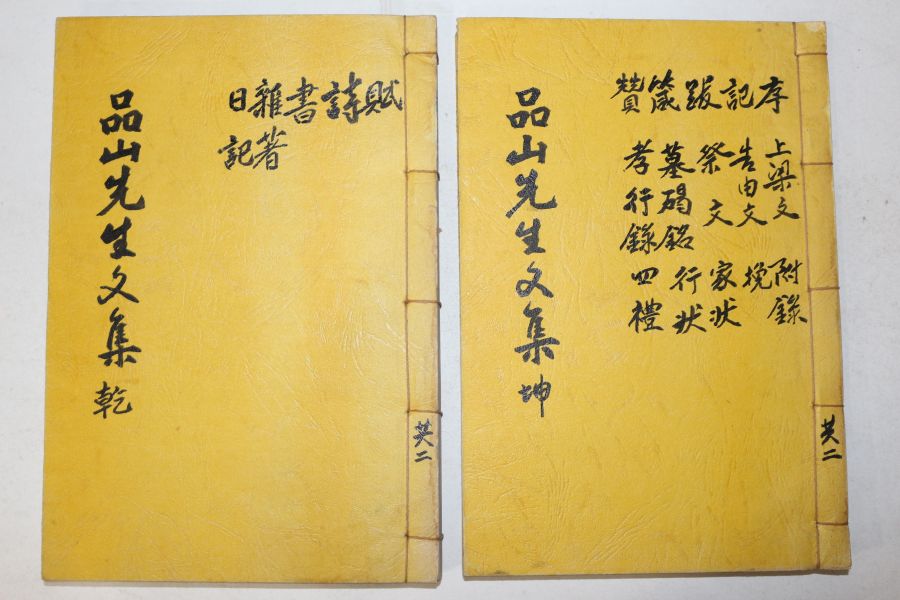 品山先生文集 乾
賦
詩
書
雜著
日記
共二
品山先生文集 坤
序 上梁文 附錄
記 告由文 挽
跋 祭文 家狀
箴 墓碣銘 行狀
贊 孝行錄 四禮
共二